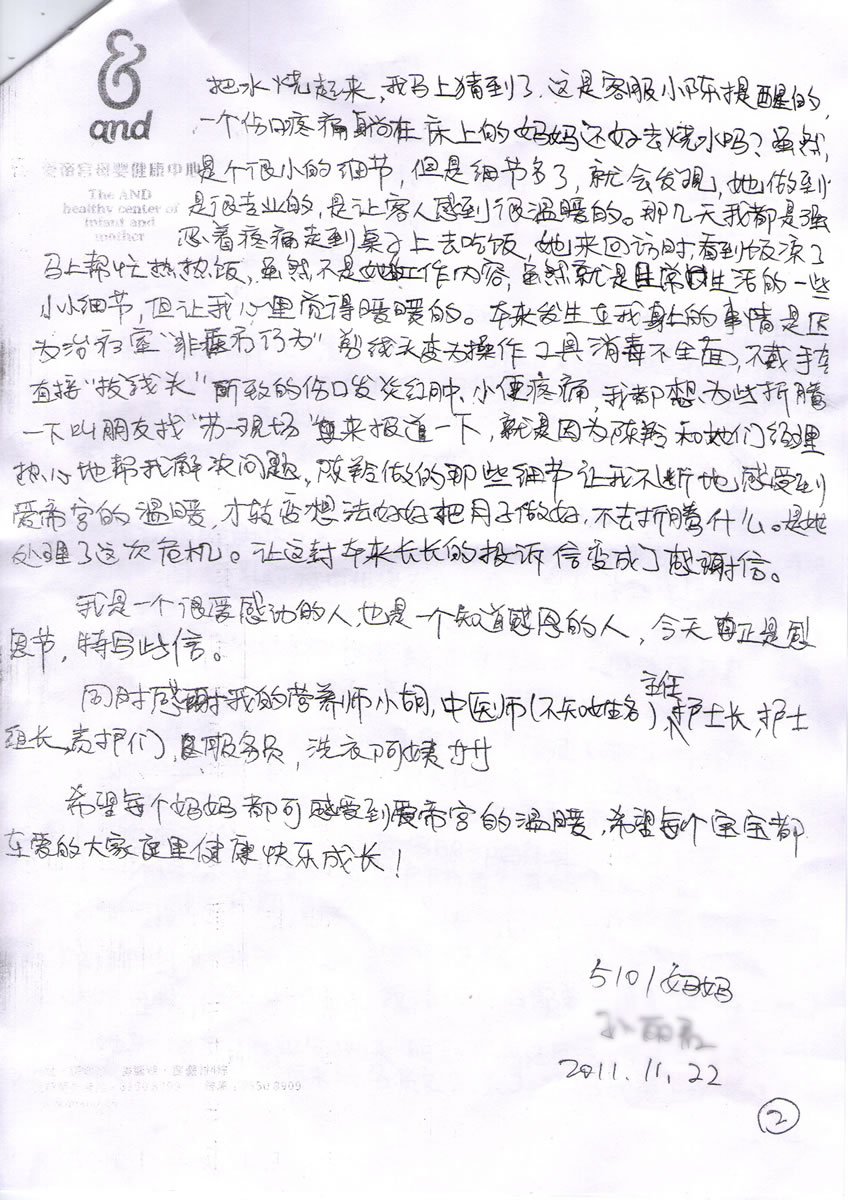 &
and
爱帝宫母婴健康中心
The AND
healthy center of
infant and
mother
把水烧起来，我马上猜到了．这是客服小陈提醒的，
一个伤口疼痛躺在床上的妈妈还好去烧水吗？虽然，
是个很小的细节，但是细节多了，就会发现，她做到
是很专业的，是让客人感到很温暖的。那几天我都是强
忍着疼痛走到桌子上去吃饭，她来回访时，看到饭凉了
马上帮忙热热饭，虽然不是她工作内容，虽然就是日常生活的一些
小小细节，但让我心里觉得暖暖的。本来发生在我身上的事情是因
为治疗室“非医疗行为”剪线头变为操作工具消毒不全面，不戴手套
直接“拔线头”所致的伤口发炎红肿、小便疼痛，我都想为此折腾
一下叫朋友找“第一现场”来报道一下，就是因为陈羚和她们经理
热心地帮我解决问题，陈羚做的那些细节让我不断地感受到
爱帝宫的温暖，才转变想法好好把月子做好，不去折腾什么。是她
处理了这次危机。让这封本来长长的投诉信变成了感谢信。
我是一个很受感动的人，也是一个知道感恩的人，今天真正是感
恩节，特写此信。
同时感谢我的营养师小胡，中医师（不知姓名）主任、护士长、护士
组长、责护们，服务员，洗衣阿姨
希望每个妈妈都可感受到爱帝宫的温暖，希望每个宝宝都
在爱的大家庭里健康快乐成长！
5101妈妈
2011.11.22
②